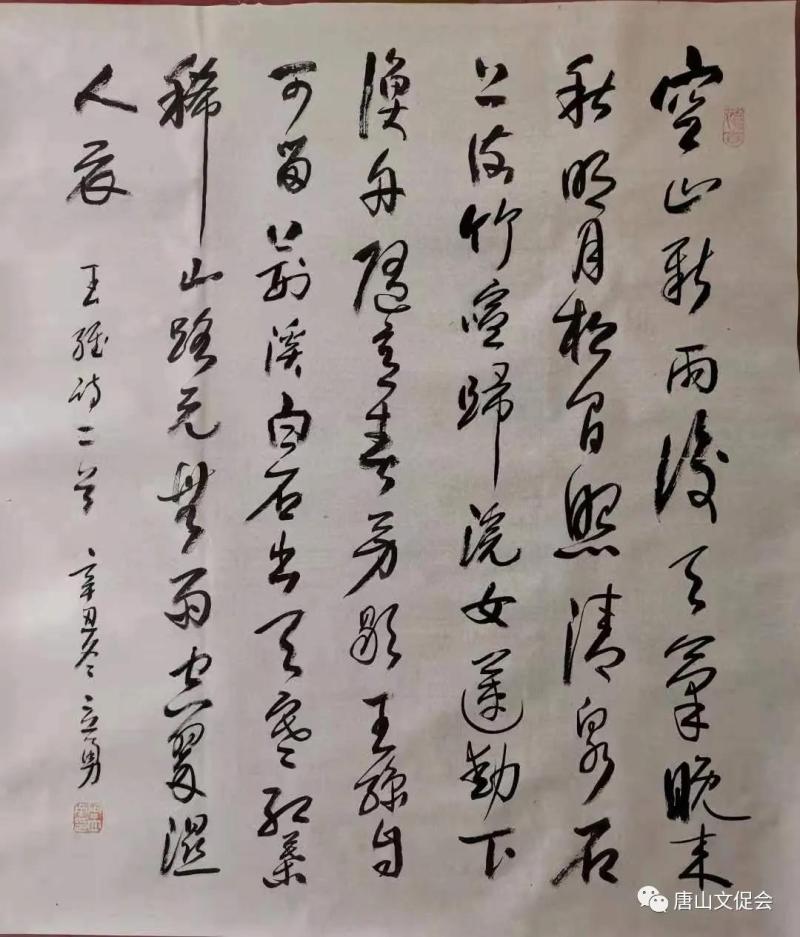 空山新雨後天氣晚来
秋明月松间照清泉石
上流竹喧歸浣女蓮動下
漁舟隨意春芳歇王孫自
可留荆溪白石出天寒红葉
稀山路元無雨空翠濕
人衣 王維诗二首 辛丑冬 立勇
唐山文促会